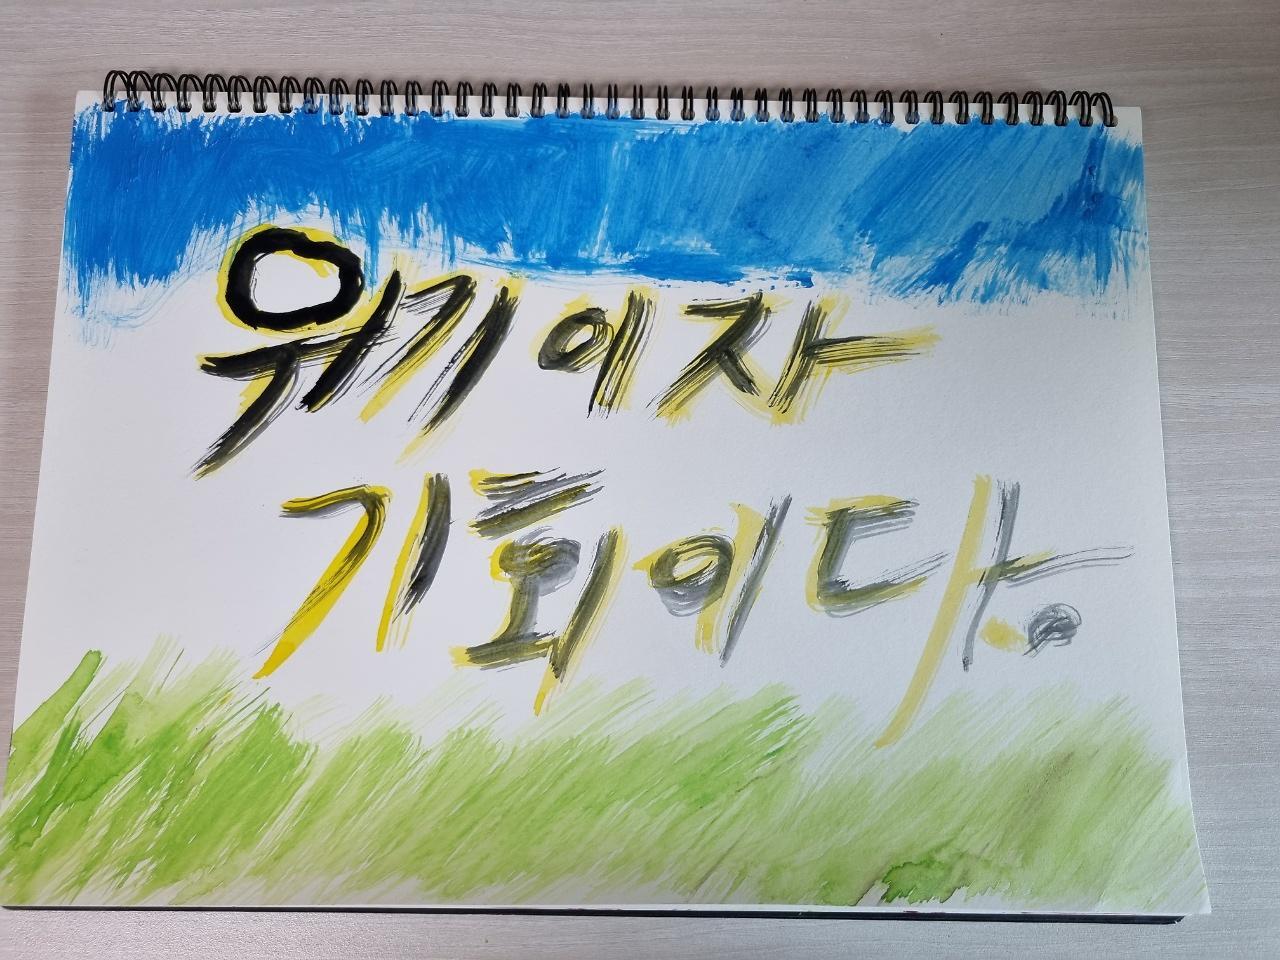 위기이자
기회이다.